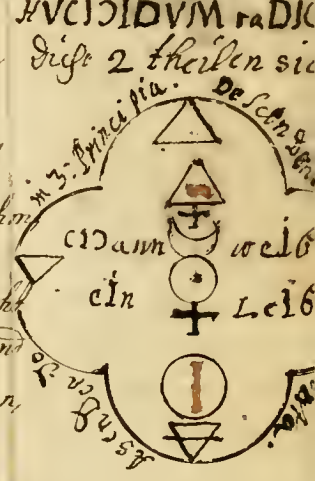 HVMIDVM raDIC
Diese 2 theilen sic
in 3: Principia. DeScenden
Mann weib
ein Leib
AScendendo